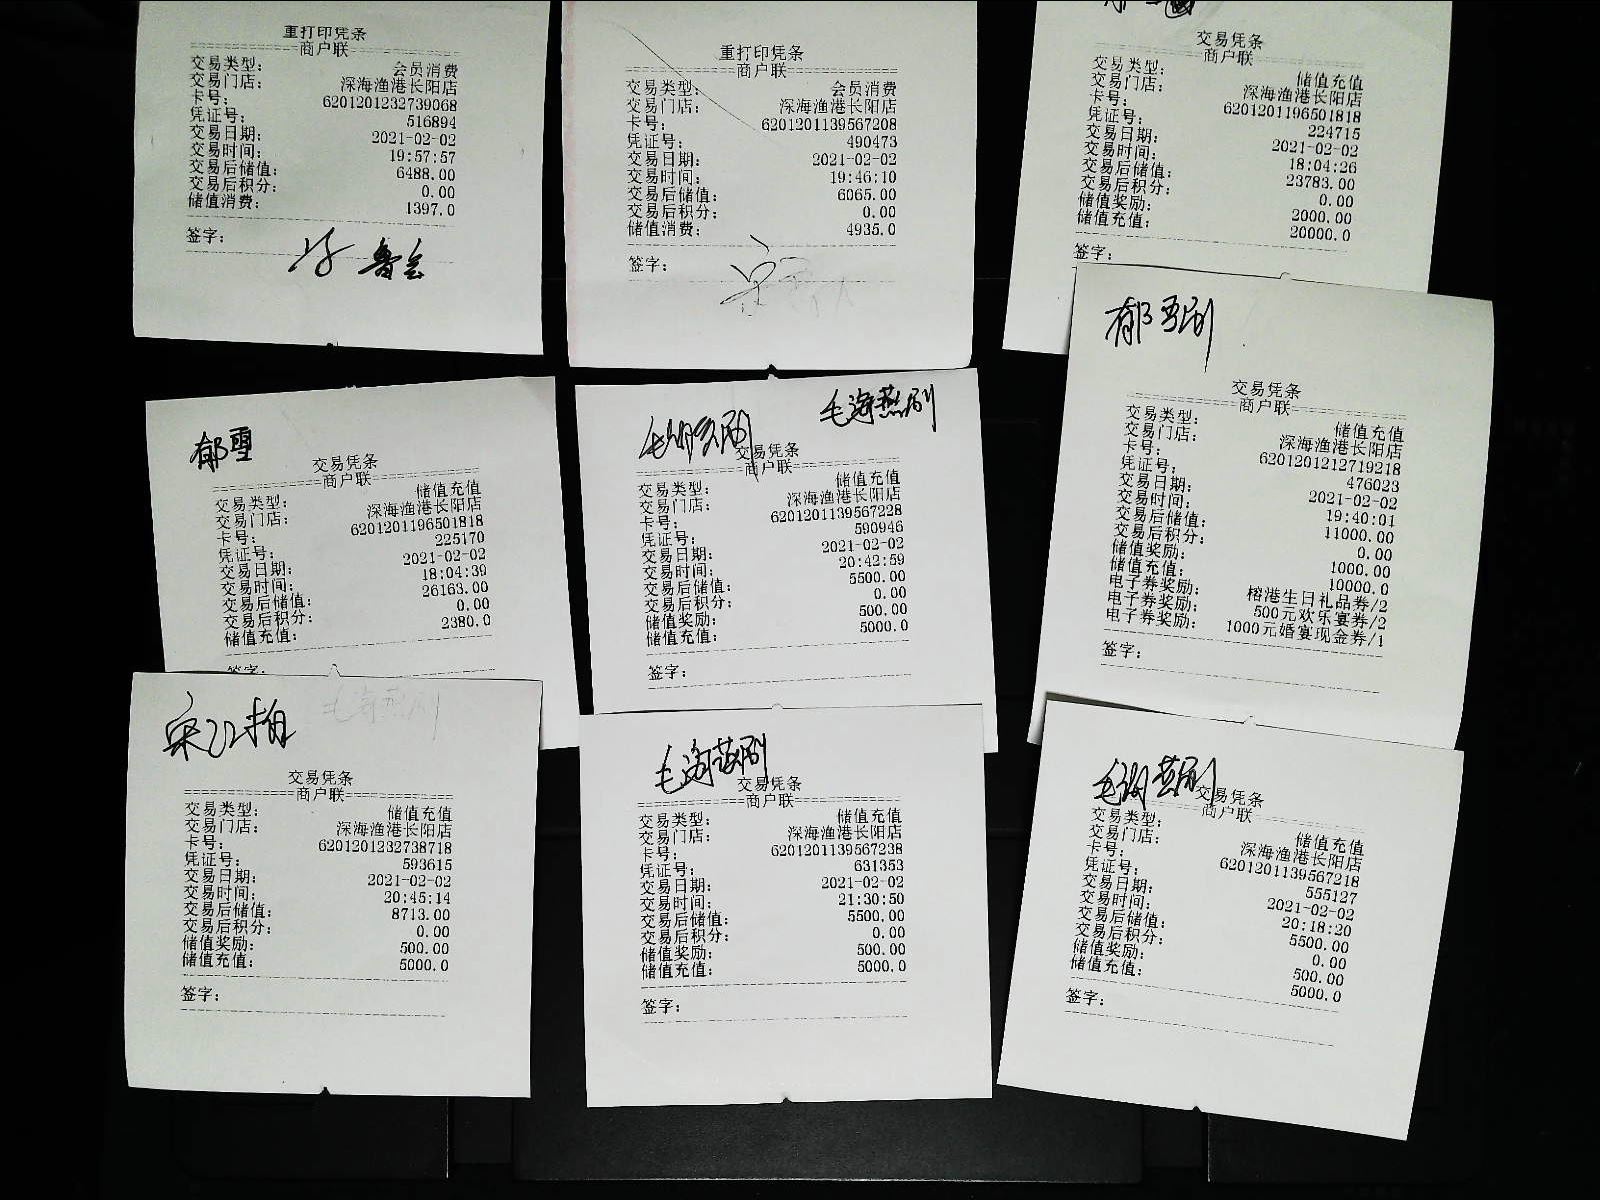 重打印凭条
商户联
交易类型: 会员消费
交易门店: 深海渔港长阳店
卡号: 6201201232739068
凭证号: 516894
交易日期: 2021-02-02
交易时间: 19:57:57
交易后储值: 6488.00
交易后积分: 0.00
储值消费: 1397.0
签字:
重打印凭条
商户联
交易类型: 会员消费
交易门店: 深海渔港长阳店
卡号: 6201201139567208
凭证号: 490473
交易日期: 2021-02-02
交易时间: 19:46:10
交易后储值: 6065.00
交易后积分: 0.00
储值消费: 4935.0
签字:
交易凭条
商户联
交易类型: 储值充值
交易门店: 深海渔港长阳店
卡号: 6201201196501818
凭证号: 224715
交易日期: 2021-02-02
交易时间: 18:04:26
交易后储值: 23783.00
交易后积分: 0.00
储值奖励: 2000.00
储值充值: 20000.0
签字:
郁雪
交易凭条
商户联
交易类型: 储值充值
交易门店: 深海渔港长阳店
卡号: 6201201196501818
凭证号: 225170
交易日期: 2021-02-02
交易时间: 18:04:39
交易后储值: 26163.00
交易后积分: 0.00
储值充值: 2380.0
签字:
毛海燕刷
交易凭条
商户联
交易类型: 储值充值
交易门店: 深海渔港长阳店
卡号: 6201201139567228
凭证号: 590946
交易日期: 2021-02-02
交易时间: 20:42:59
交易后储值: 5500.00
交易后积分: 0.00
储值奖励: 500.00
储值充值: 5000.0
签字:
交易凭条
商户联
交易类型: 储值充值
交易门店: 深海渔港长阳店
卡号: 6201201212719218
凭证号: 476023
交易日期: 2021-02-02
交易时间: 19:40:01
交易后储值: 11000.00
交易后积分: 0.00
储值奖励: 1000.00
储值充值: 10000.0
电子券奖励: 榕港生日礼品券/2
电子券奖励: 500元欢乐宴券/2
电子券奖励: 1000元婚宴现金券/1
签字:
毛海燕刷
交易凭条
商户联
交易类型: 储值充值
交易门店: 深海渔港长阳店
卡号: 6201201232738718
凭证号: 593615
交易日期: 2021-02-02
交易时间: 20:45:14
交易后储值: 8713.00
交易后积分: 0.00
储值奖励: 500.00
储值充值: 5000.0
签字:
毛海燕刷
交易凭条
商户联
交易类型: 储值充值
交易门店: 深海渔港长阳店
卡号: 6201201139567238
凭证号: 631353
交易日期: 2021-02-02
交易时间: 21:30:50
交易后储值: 5500.00
交易后积分: 0.00
储值奖励: 500.00
储值充值: 5000.0
签字:
毛海燕刷
交易凭条
商户联
交易类型: 储值充值
交易门店: 深海渔港长阳店
卡号: 6201201139567218
凭证号: 555127
交易日期: 2021-02-02
交易时间: 20:18:20
交易后储值: 5500.00
交易后积分: 0.00
储值奖励: 500.00
储值充值: 5000.0
签字: